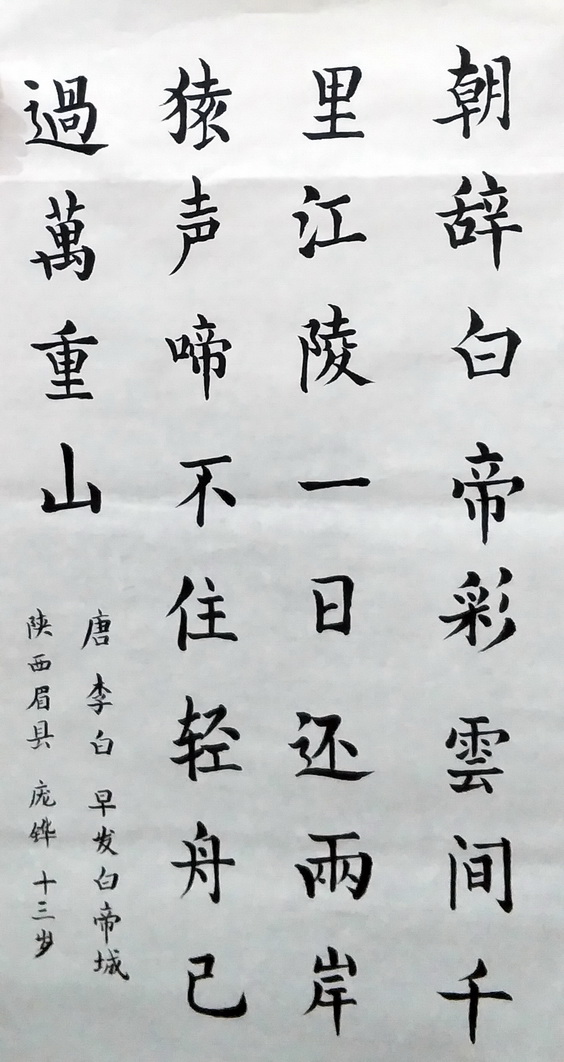 朝辞白帝彩雲间千
里江陵一日还兩岸
猿声啼不住轻舟已
過萬重山
唐李白 早发白帝城
陕西眉县 庞铧 十三岁